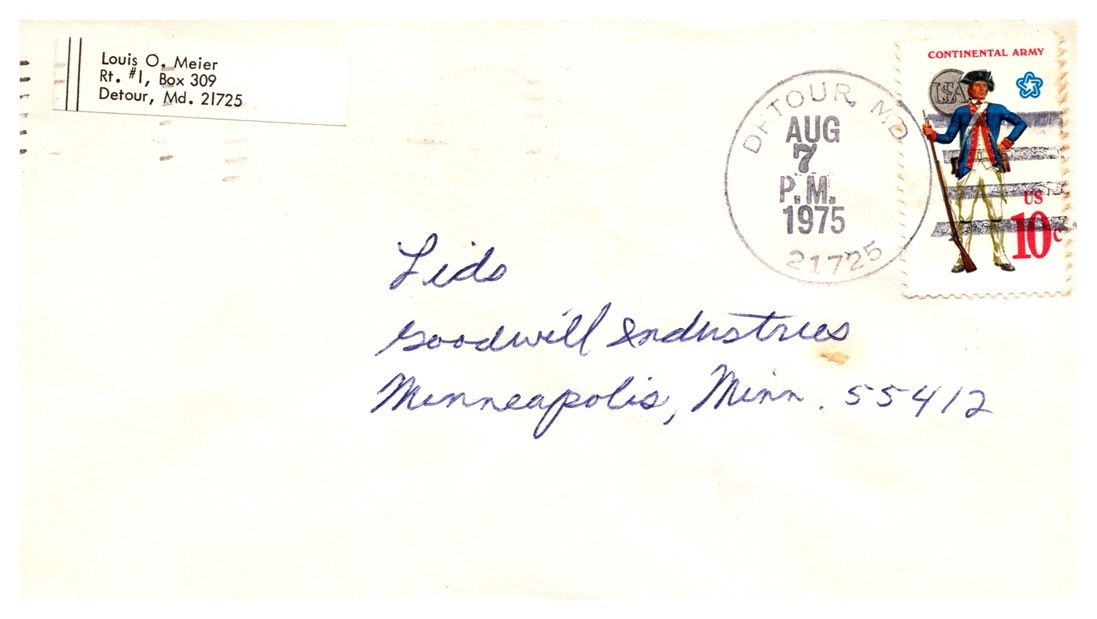 Louis O. Meier
Rt. #1, Box 309
Detour, Md. 21725
DETOUR, MD
AUG
7
P.M.
1975
21725
CONTINENTAL ARMY
USA
US
10c
Lids
Goodwill Industries
Minneapolis, Minn. 55412